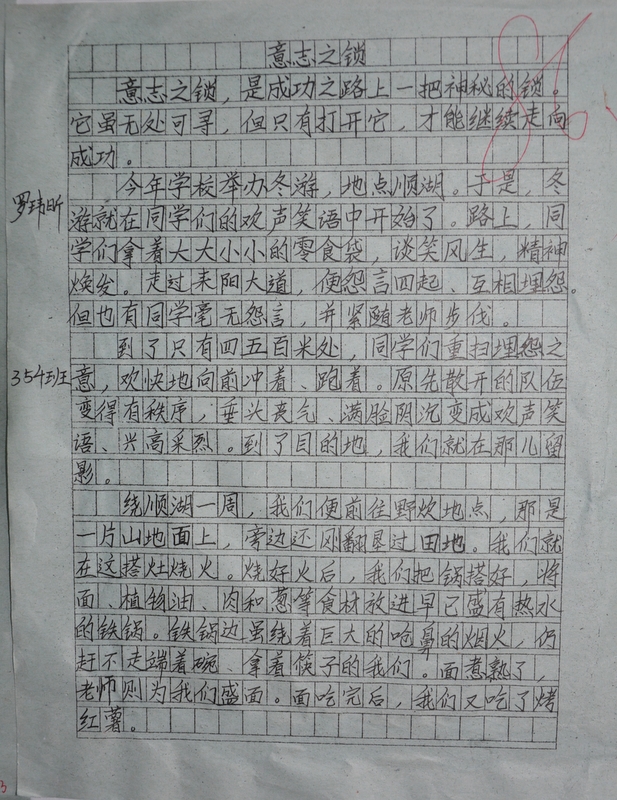 意志之锁
意志之锁，是成功之路上一把神秘的锁。
它虽无处可寻，但只有打开它，才能继续走向
成功。
今年学校举办冬游，地点顺湖。于是，冬
罗玮昕
游就在同学们的欢声笑语中开始了。路上，同
学们拿着大大小小的零食袋，谈笑风生，精神
焕发。走过耒阳大道，便怨言四起、互相埋怨。
但也有同学毫无怨言，并紧随老师步伐。
到了只有四五百米处，同学们重扫埋怨之
354班
意，欢快地向前冲着、跑着。原先散开的队伍
变得有秩序，垂头丧气、满脸阴沉变成欢声笑
语、兴高采烈。到了目的地，我们就在那儿留
影。
绕顺湖一周，我们便前往野炊地点，那是
一片山地面上，旁边还刚翻垦过田地。我们就
在这搭灶烧火。烧好火后，我们把锅搭好，将
面、植物油、肉和葱等食材放进早已盛有热水
的铁锅。铁锅边虽绕着巨大的呛鼻的烟火，仍
赶不走端着碗、拿着筷子的我们。面煮熟了，
老师则为我们盛面。面吃完后，我们又吃了烤
红薯。